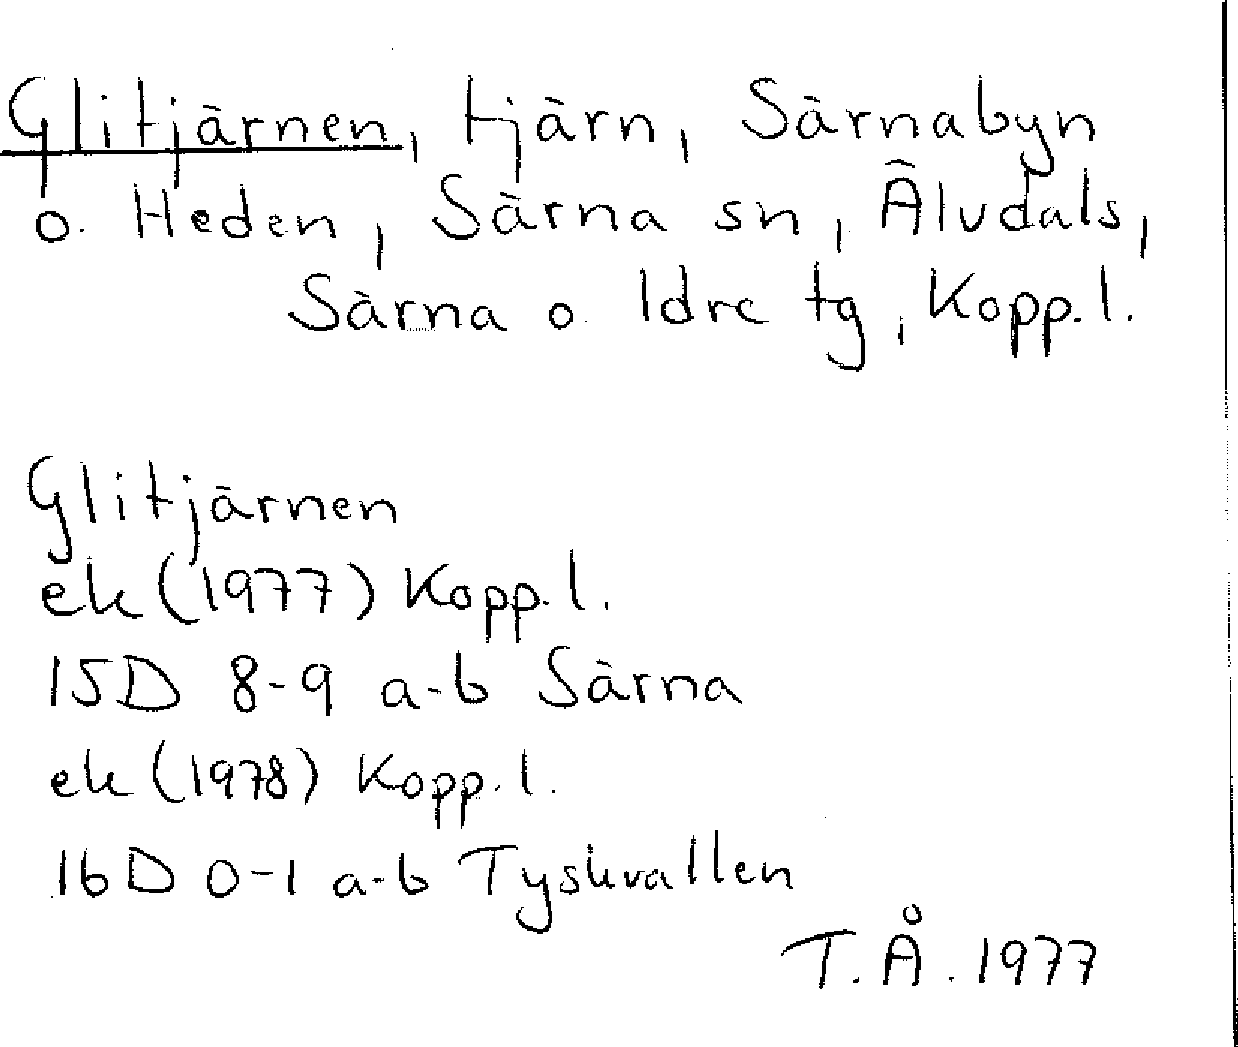 Glitjärnen, tjärn, Särnabyn
o. Heden, Särna sn, Älvdals,
Särna o. Idre tg, Kopp. l.
Glitjärnen
ek (1977) Kopp. l.
15D 8-9 a-b Särna
ek (1978) Kopp. l.
16D 0-1 a-b Tyskvallen
T.Å. 1977